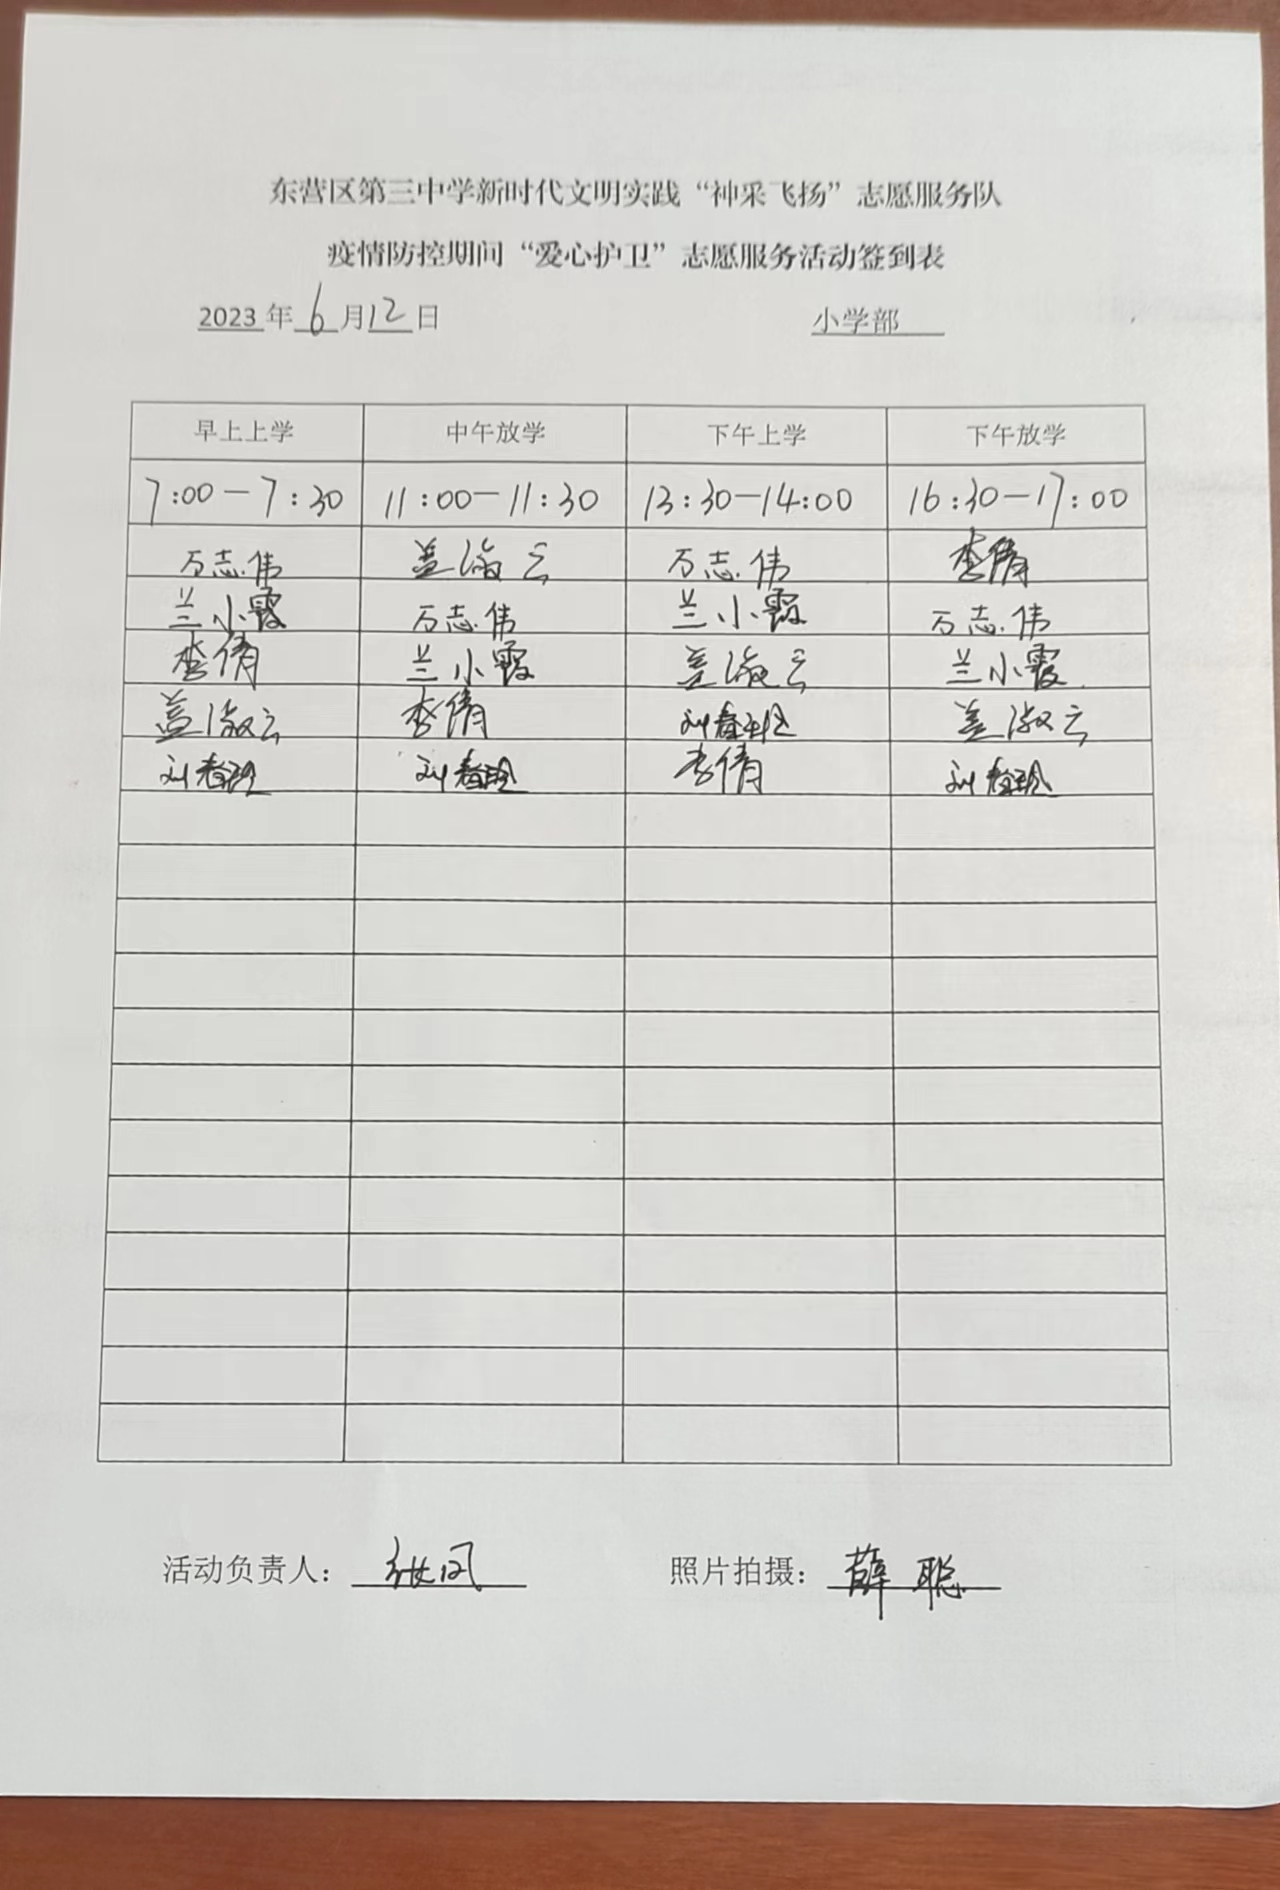 东营区第三中学新时代文明实践“神采飞扬”志愿服务队
疫情防控期间“爱心护卫”志愿服务活动签到表
2023 年 6 月 12 日 小学部
早上上学 中午放学 下午上学 下午放学
7:00-7:30 11:00-11:30 13:30-14:00 16:30-17:00
万志伟 盖淑云 万志伟 李倩
兰小霞 万志伟 兰小霞 万志伟
李倩 兰小霞 盖淑云 兰小霞
盖淑云 李倩 刘春玲 盖淑云
刘春玲 刘春玲 李倩 刘春玲
活动负责人：张凤 照片拍摄：薛聪